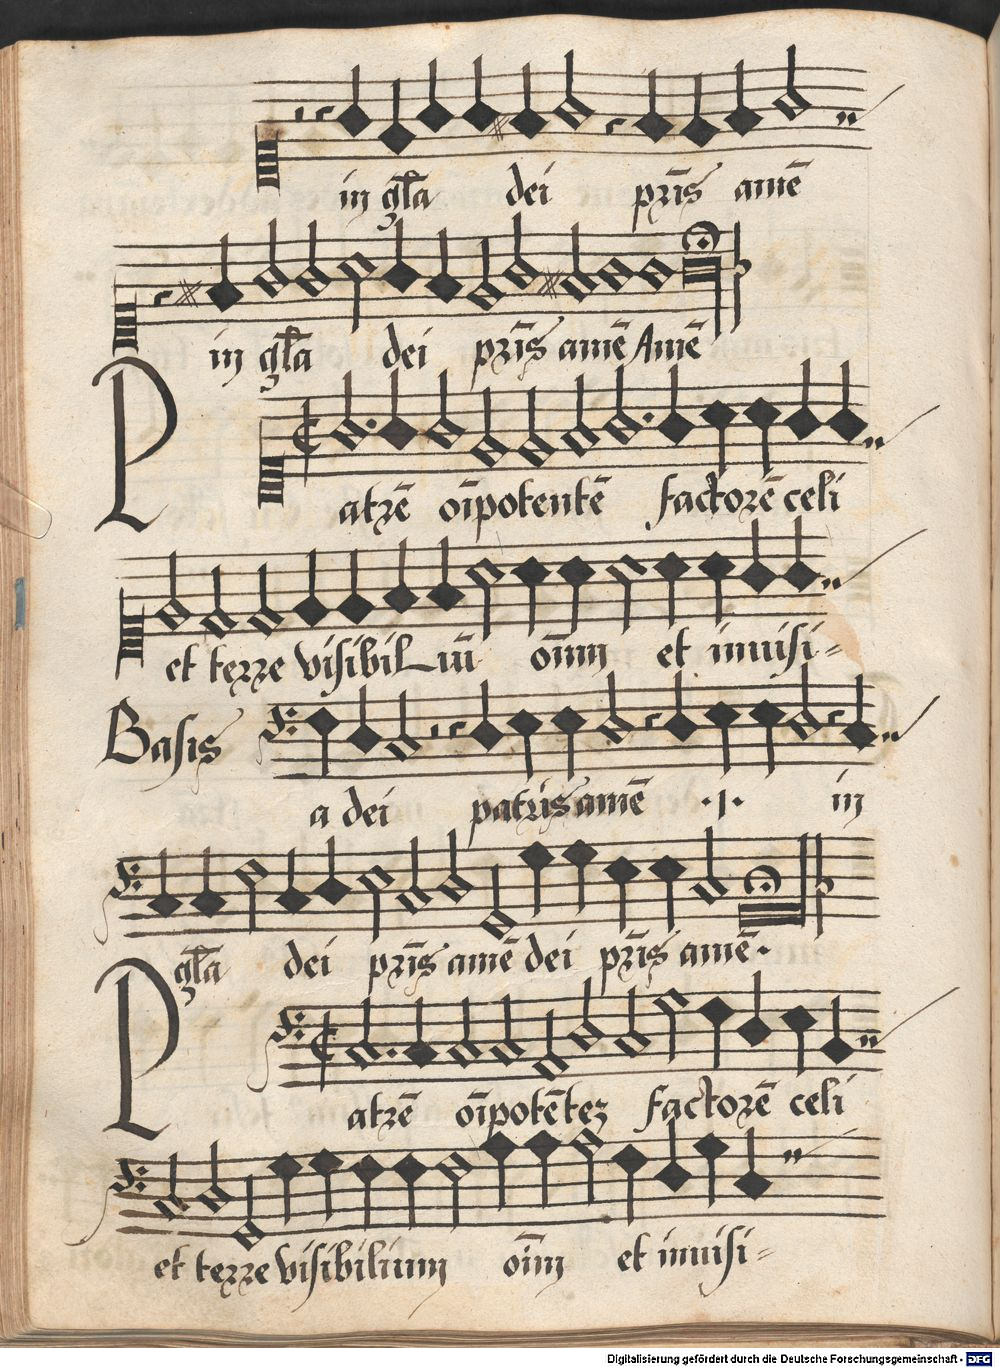 in gl̄a dei pr̄is amē
in gl̄a dei pr̄is amē Amē
Patrē oīpotentē factorē celi
et terre visibiliū oīum et inuisi-
Basis
a dei patris amē ·i· in
gl̄a dei pr̄is amē dei pr̄is amē·
Patrē oīpotētez factorē celi
et terre visibilium oīm et inuisi-
Digitalisierung gefördert durch die Deutsche Forschungsgemeinschaft - DFG